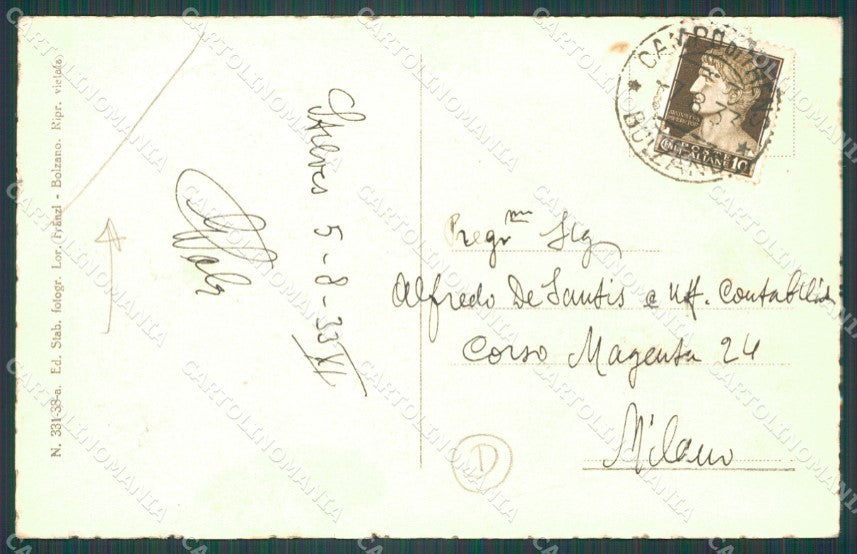 N. 331-38-a. Ed. Stab. fotogr. Lor. Fränzl - Bolzano. Ripr. vietata
5-8-33 XI
CAMPO
BOLZANO
POSTE
ITALIANE 10
Pregmm Sig
Alfredo De Santis e Uff. Contabilità
Corso Magenta 24
Milano
D
CARTOLINOMANIA